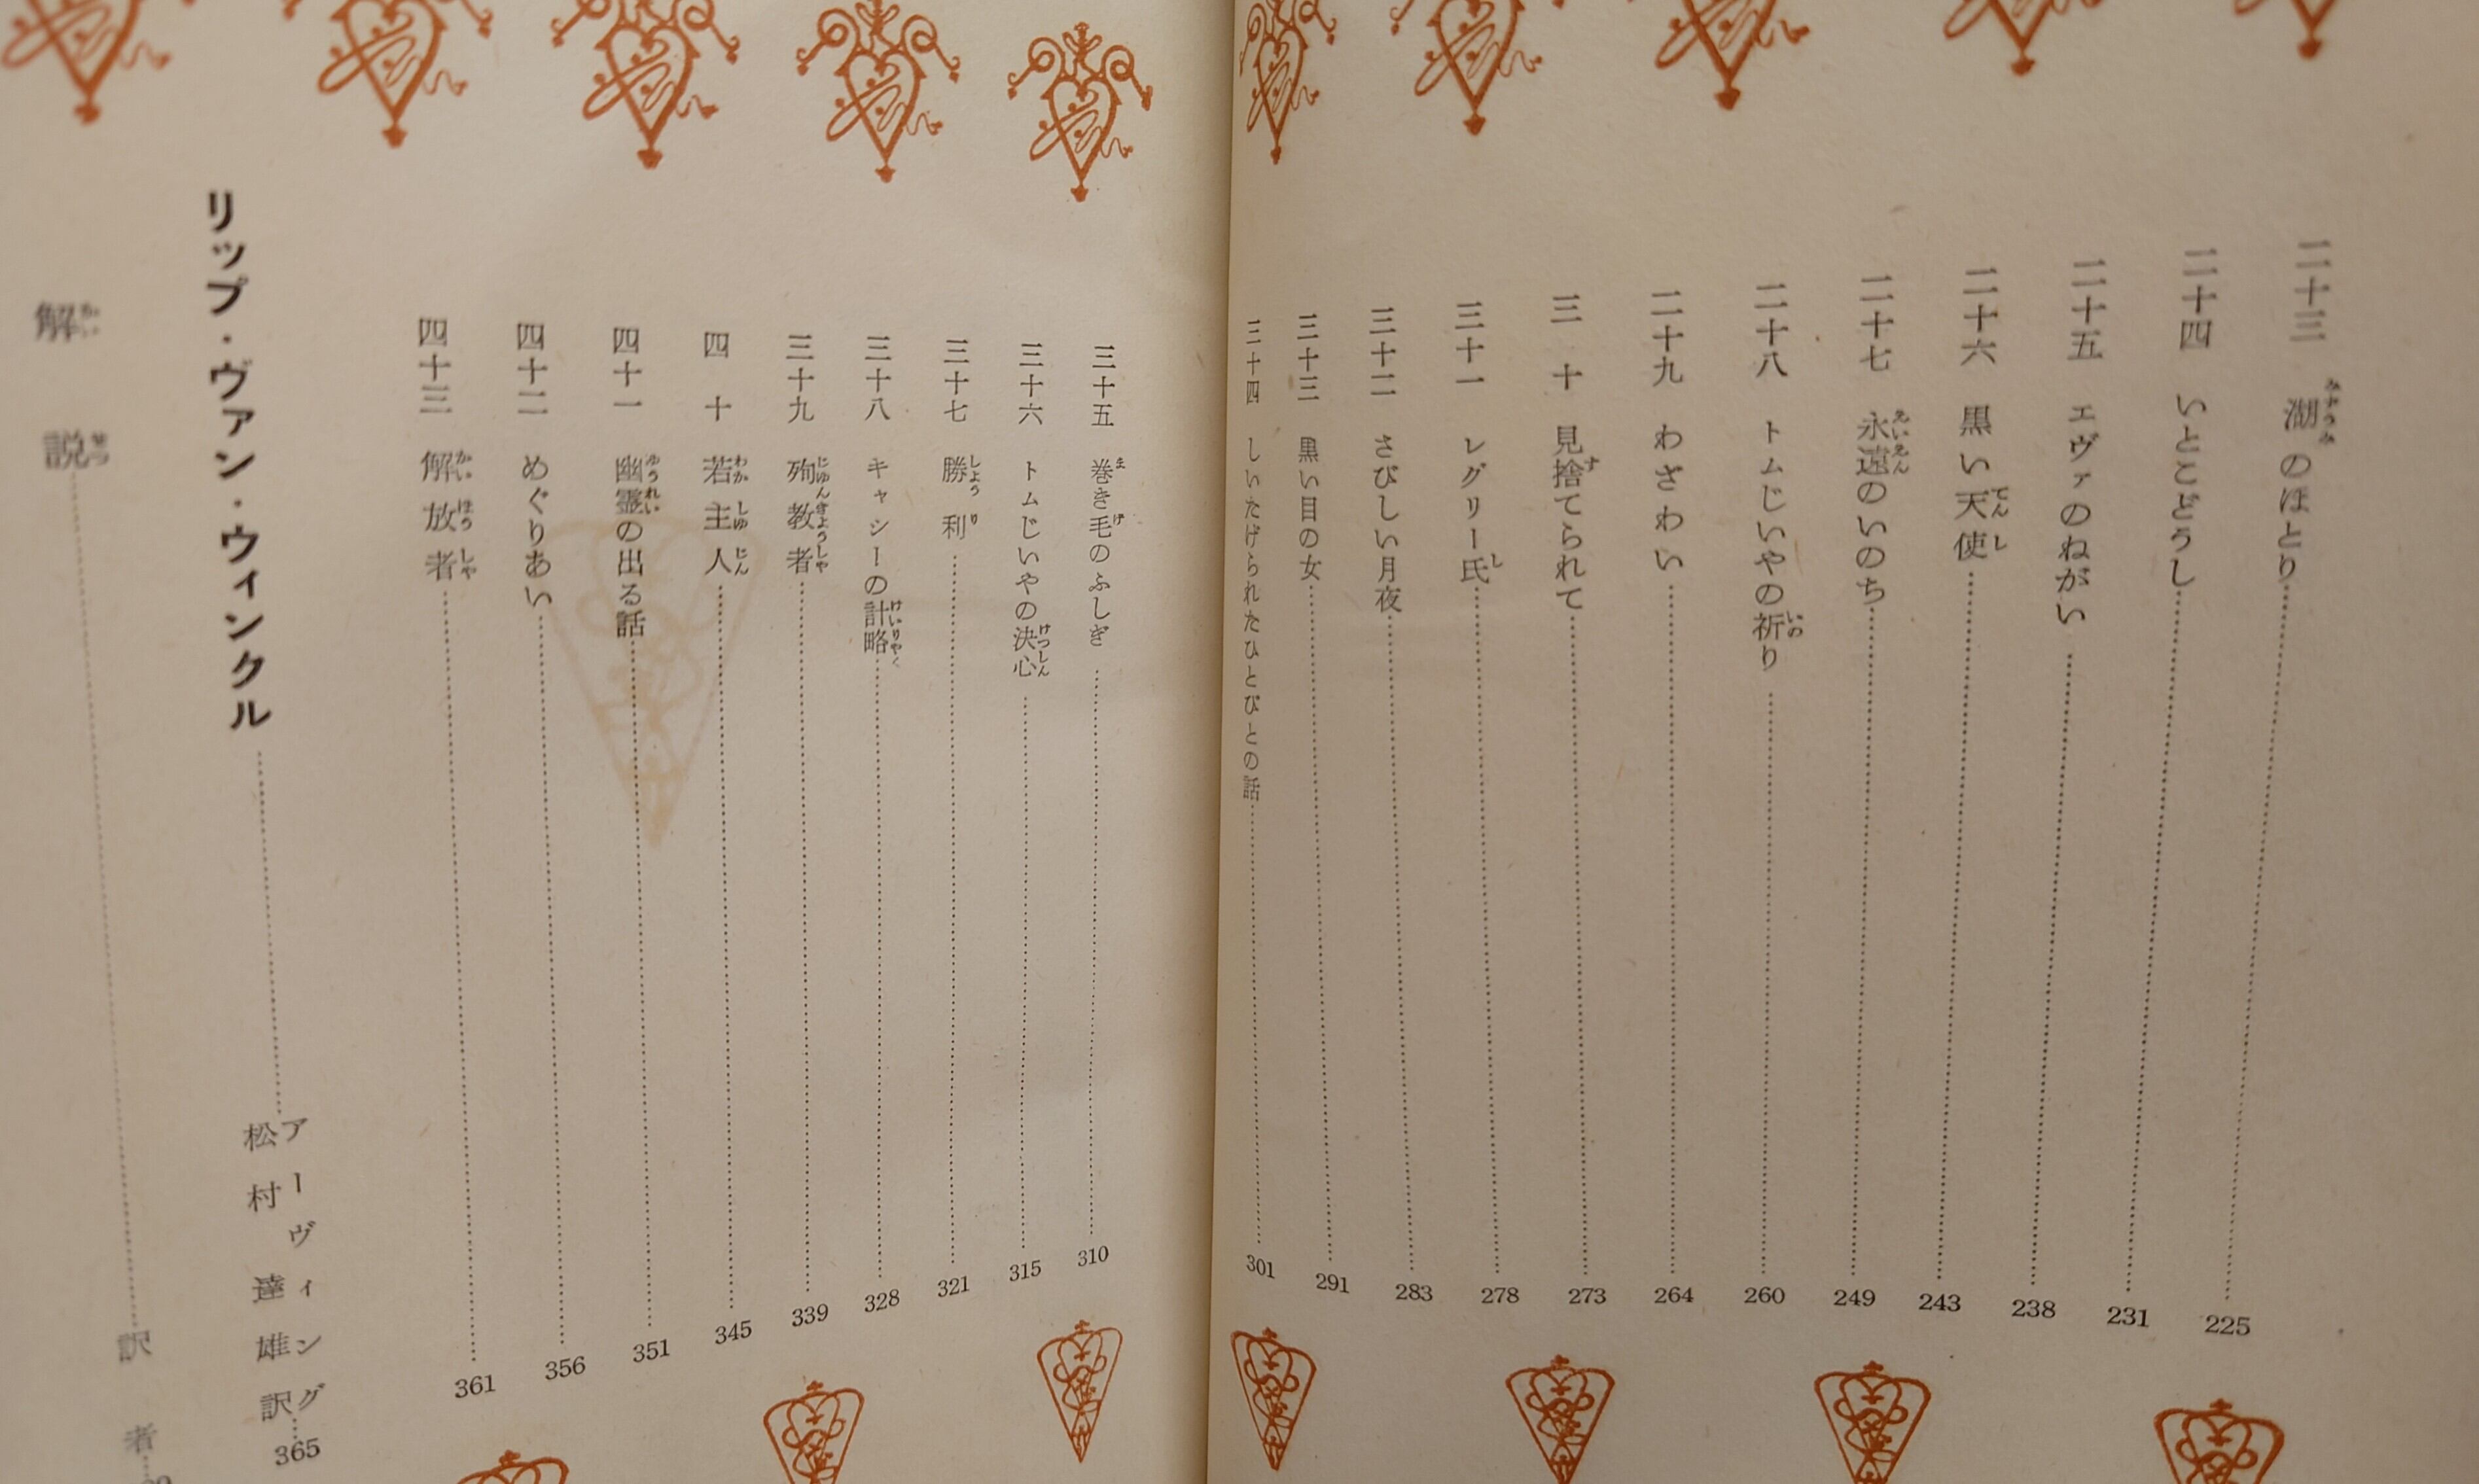 二十三 湖のほとり 225
二十四 いとこどうし 231
二十五 エヴァのねがい 238
二十六 黒い天使 243
二十七 永遠のいのち 249
二十八 トムじいやの祈り 260
二十九 わざわい 264
三十 見捨てられて 273
三十一 レグリー氏 278
三十二 さびしい月夜 283
三十三 黒い目の女 291
三十四 しいたげられたひとびとの話 301
三十五 巻き毛のふしぎ 310
三十六 トムじいやの決心 315
三十七 勝利 321
三十八 キャシーの計略 328
三十九 殉教者 339
四十 若主人 345
四十一 幽霊の出る話 351
四十二 めぐりあい 356
四十三 解放者 361
リップ・ヴァン・ウィンクル アーヴィング
松村達雄訳 365
解説 訳者